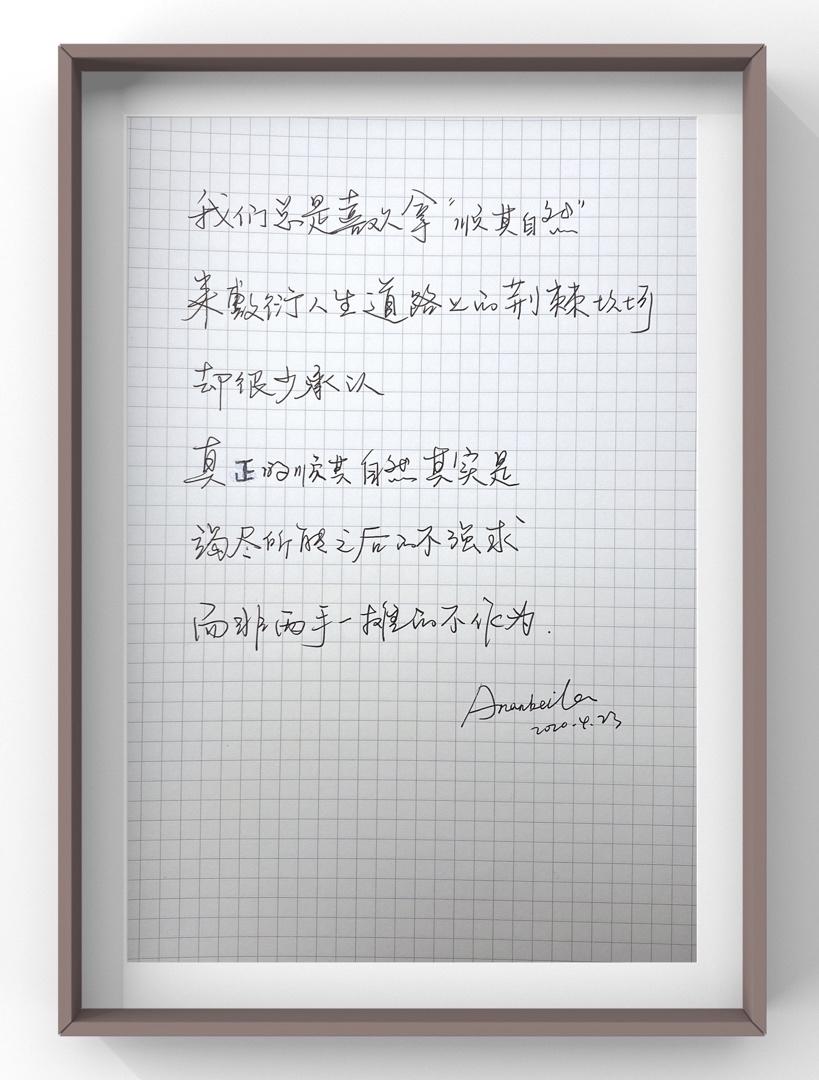 我们总是喜欢拿“顺其自然”
来敷衍人生道路上的荆棘坎坷
却很少承认
真正的顺其自然其实是
竭尽所能之后的不强求
而非两手一摊的不作为.
Ananbeila
2020.4.23